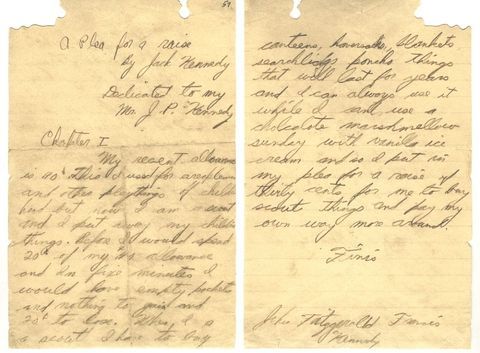 57
A Plea for a raise
by Jack Kennedy
Dedicated to my
Mr. J. P. Kennedy
Chapter I
My recent allowance
is 40¢ This I used for areoplanes
and other playthings of childhood
but now I am a scout
and I put away my childish
things. Before I would spend
20¢ of my ¢40 allowance
and in five minutes I
would have empty pockets
and nothing to gain and
20¢ to lose. When I a
a scout I have to buy
canteens, haversacks, blankets
searchlidgs poncho things
that will last for years
and I can always use it
while I cant use a
cholcolate marshmellow
sunday with vanilla ice
cream and so I put in
my plea for a raise of
thirty cents for me to buy
scout things and pay my
own way more around.
Finis
John Fitzgerald Francis
Kennedy